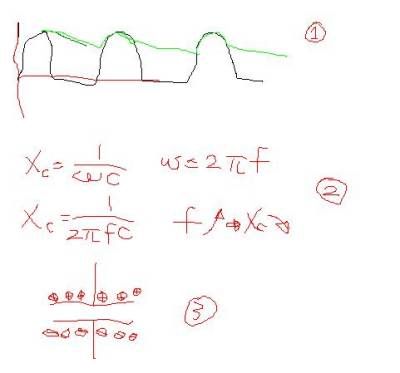 ①
X_c = 1/ωC ω = 2πf
②
X_c = 1/2πfC f ↗ → X_c ↘
⊕ ⊕ ⊕ ⊕ ⊕ ⊕
③
⊖ ⊖ ⊖ ⊖ ⊖ ⊖